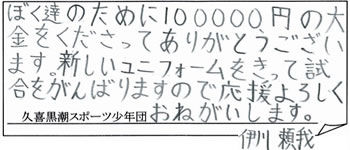 ぼく達のために100000円の大
金をくださってありがとうござい
ます。新しいユニフォームをきって試
合をがんばりますので応援よろしく
久喜黒潮スポーツ少年団 おねがいします。
伊川 頼我